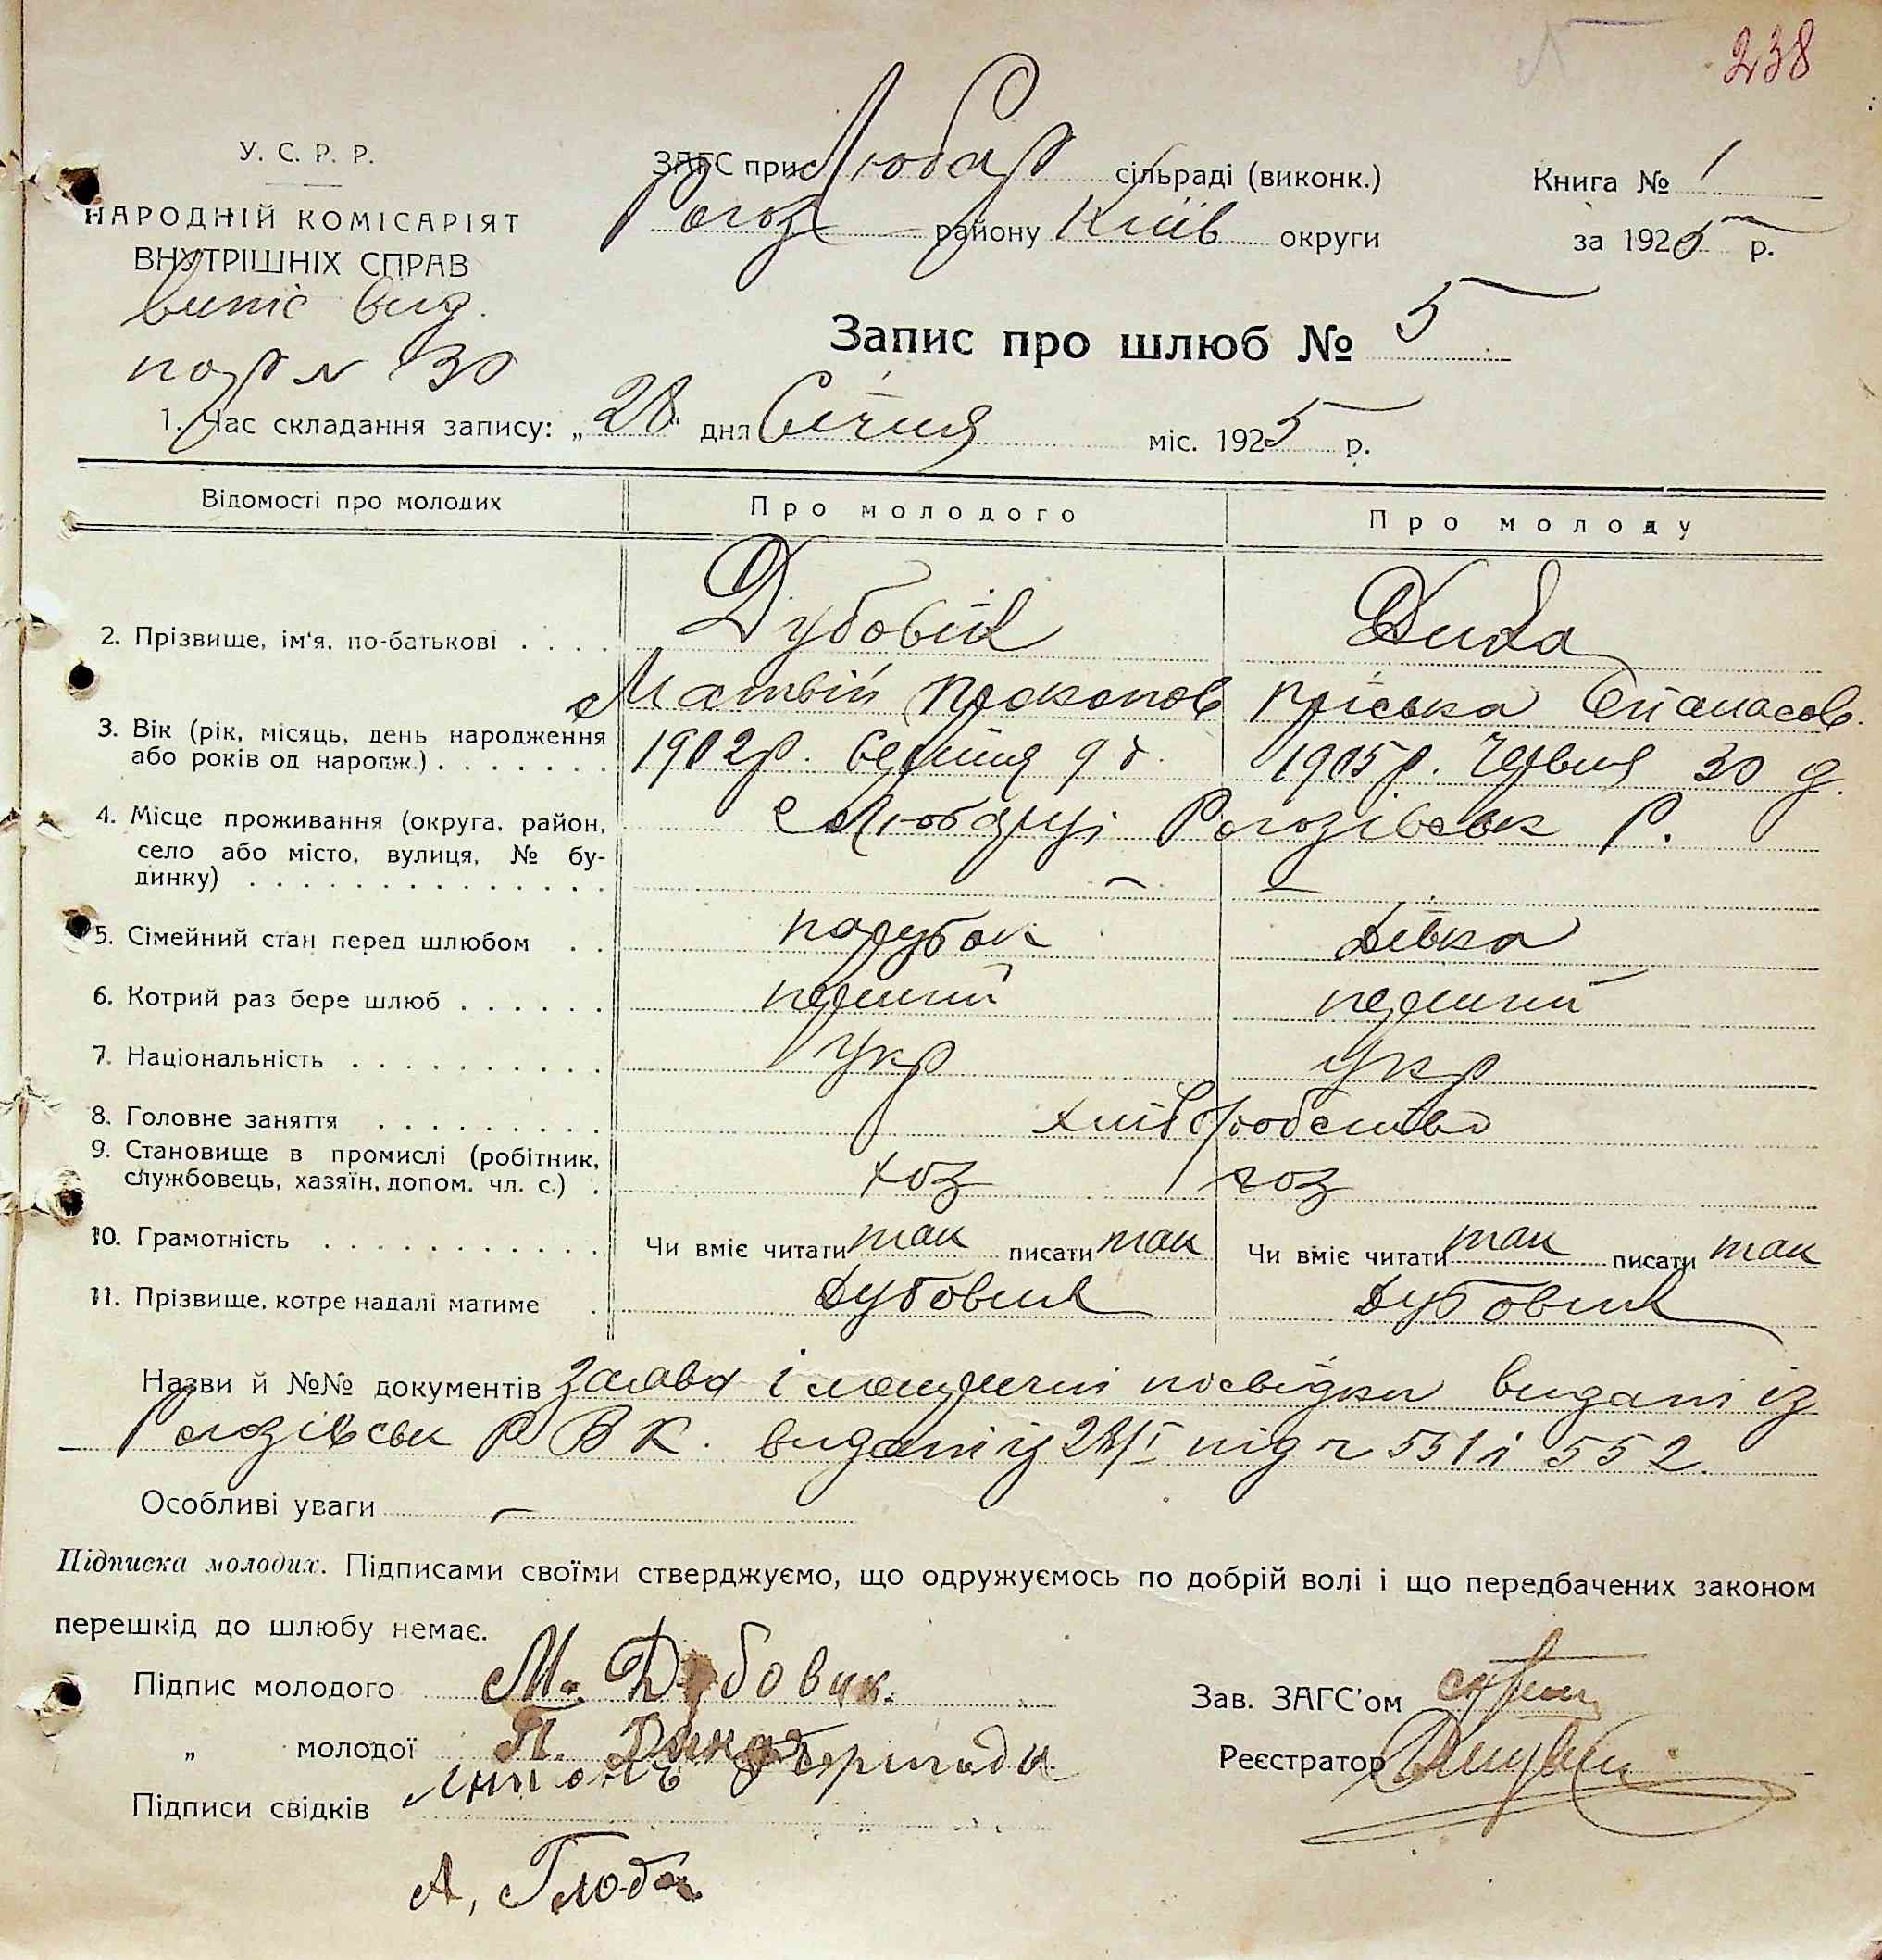 238
У. С. Р. Р.
НАРОДНІЙ КОМІСАРІЯТ
ВНУТРІШНІХ СПРАВ
випіс вид.
по р N 30
ЗАГС при Любар сільраді (виконк.)
Рогоз району Київ округи
Книга № 1
за 1925 р.
Запис про шлюб № 5
1. Час складання запису: „28“ дня Січня міс. 1925 р.
Відомості про молодих Про молодого Про молоду
2. Прізвище, ім'я, по-батькові . . . . Дубовик Дика
Матвій Прокопов Пріська Опанасов.
3. Вік (рік, місяць, день народження
або років од народж.) . . . . . . . 1902р. серпня 9 д. 1905 р. Червня 30 д.
4. Місце проживання (округа, район, с Любарці Рогозівськ Р.
село або місто, вулиця, № бу-
динку) . . . . . . . . . . . . . . —
5. Сімейний стан перед шлюбом . . парубок дівка
6. Котрий раз бере шлюб . . . . . . перший перший
7. Національність . . . . . . . . . . укр укр
8. Головне заняття . . . . . . . . . хліборобство
9. Становище в промислі (робітник,
службовець, хазяїн, допом. чл. с.) . хоз хоз
10. Грамотність . . . . . . . . . . . Чи вміє читати так писати так Чи вміє читати так писати так
11. Прізвище, котре надалі матиме . Дубовик Дубовик
Назви й №№ документів Заява і посвідки видані із
Рогозівськ Р В К. видані із 28/I під ч 551 і 552.
Особливі уваги —
Підписка молодих. Підписами своїми стверджуємо, що одружуємось по добрій волі і що передбачених законом
перешкід до шлюбу немає.
Підпис молодого М. Дубовик.
„ молодої П. Дика
Підписи свідків
А, Глоба
Зав. ЗАГС'ом
Реєстратор